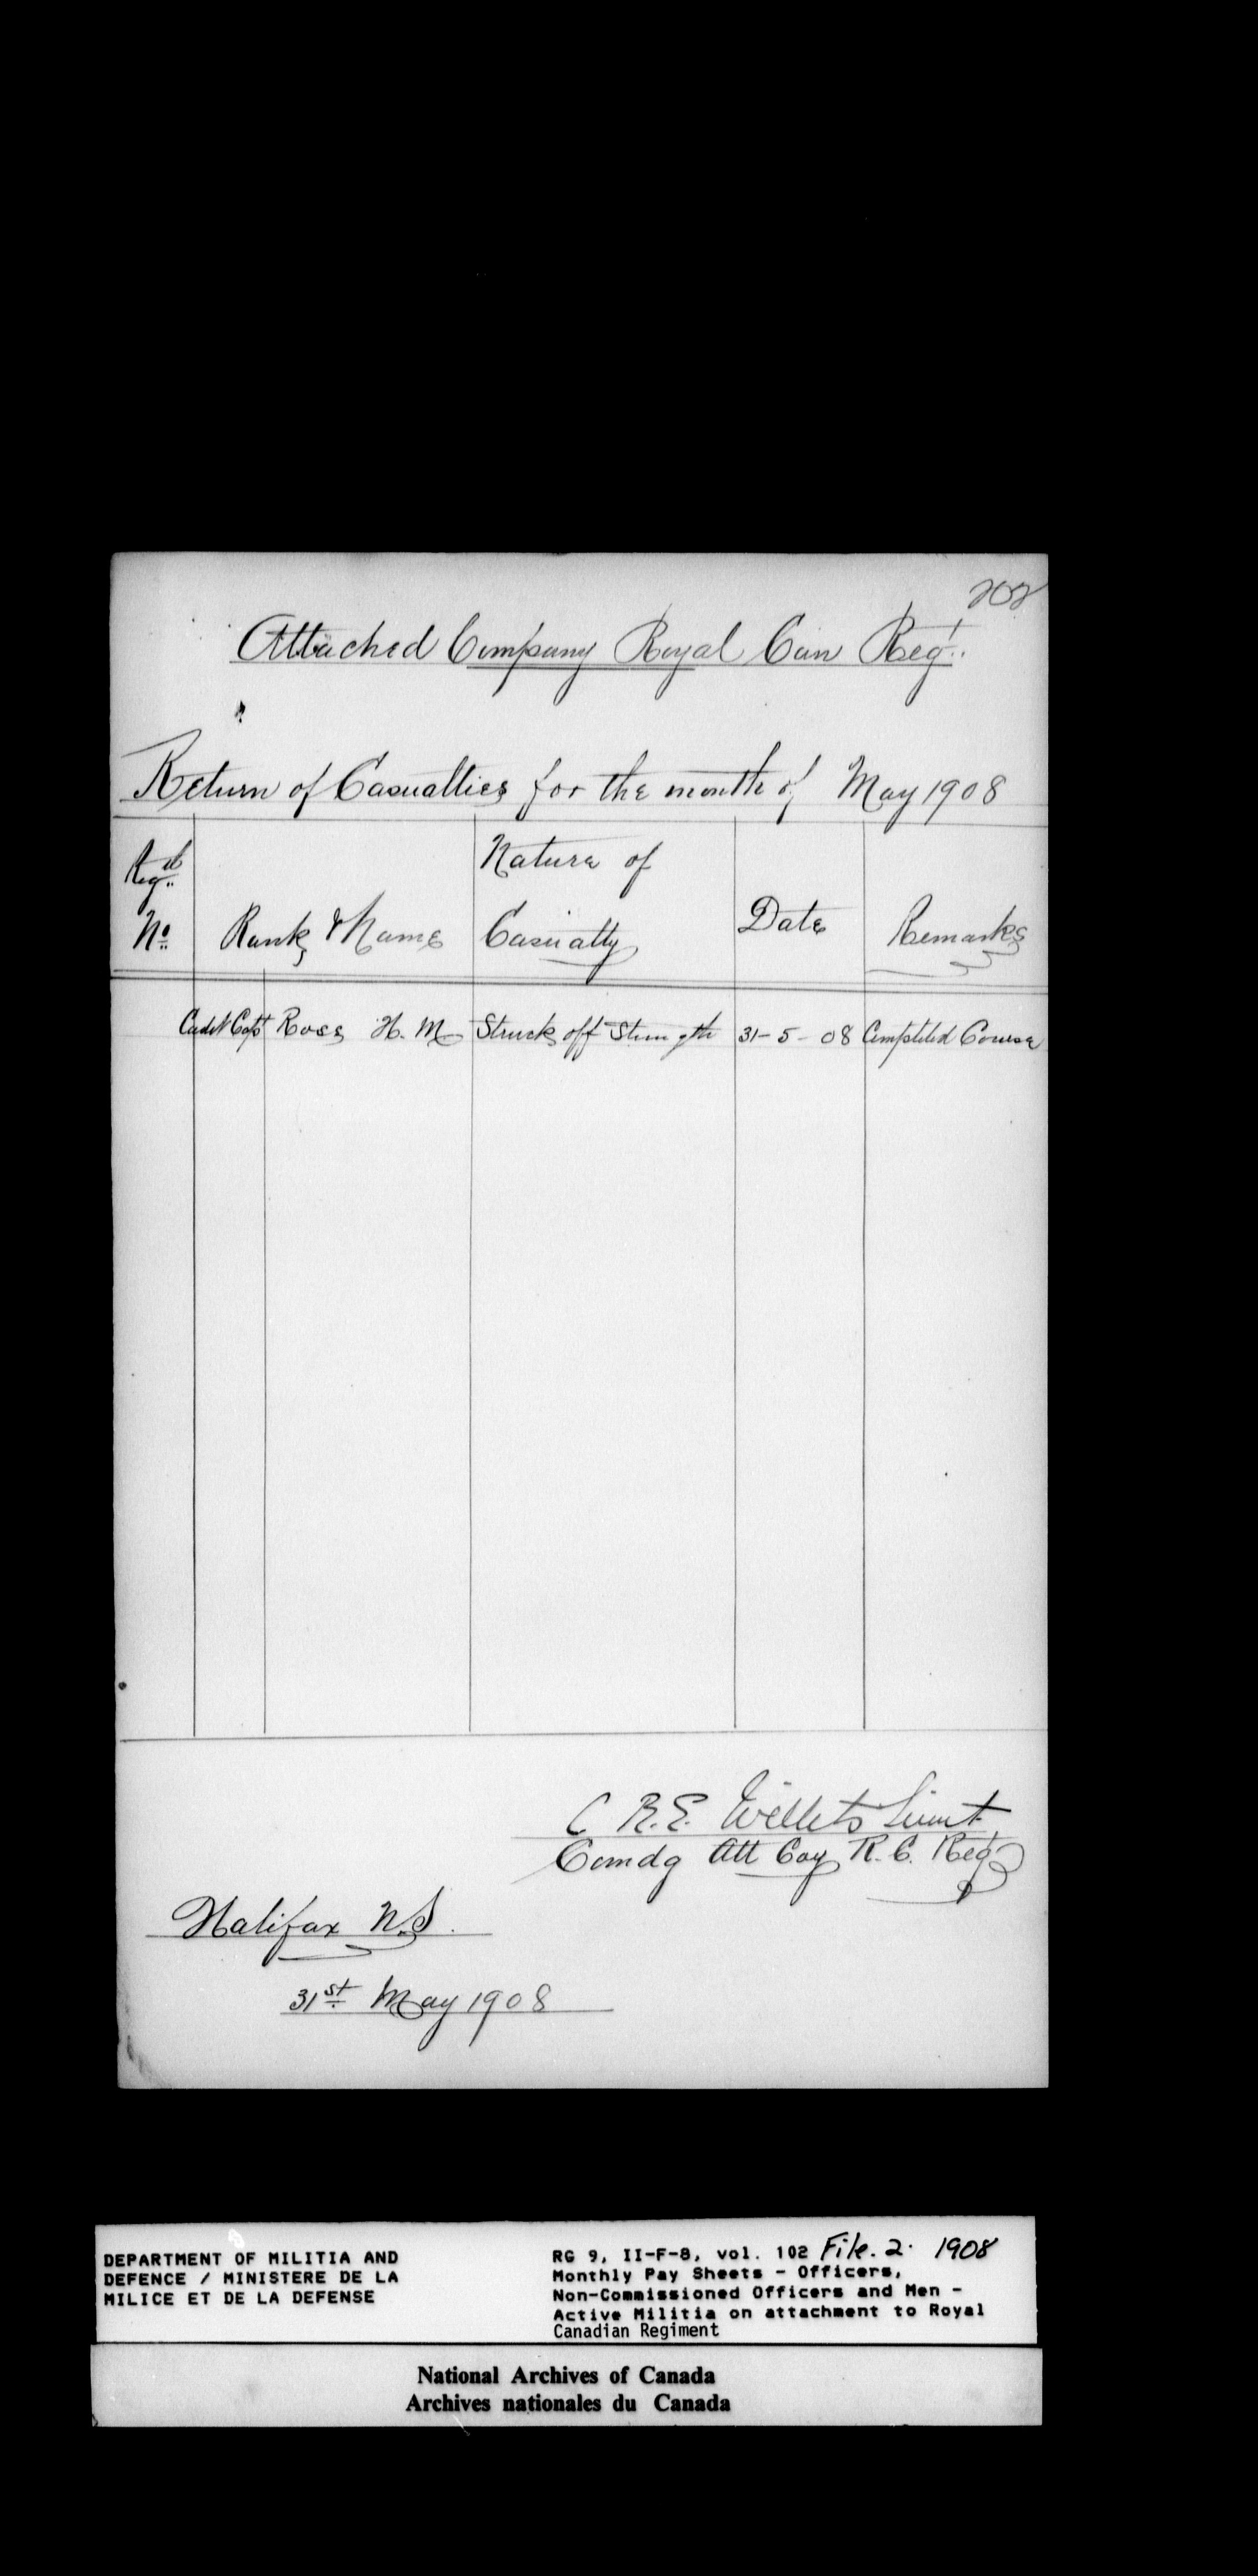 202
Attached Company Royal Can Regt.
Return of Casualties for the month of May 1908
Regtl No Rank & Name Nature of Casualty Date Remarks
Cadet Capt Ross H. M. Struck off Strength 31-5-08 Completed Course
C R.E. Willets Lieut.
Comdg Att Coy R.C. Regt
Halifax N.S.
31st May 1908
DEPARTMENT OF MILITIA AND
DEFENCE / MINISTERE DE LA
MILICE ET DE LA DEFENSE
RG 9, II-F-8, vol. 102 File. 2. 1908
Monthly Pay Sheets - Officers,
Non-Commissioned Officers and Men -
Active Militia on attachment to Royal
Canadian Regiment
National Archives of Canada
Archives nationales du Canada